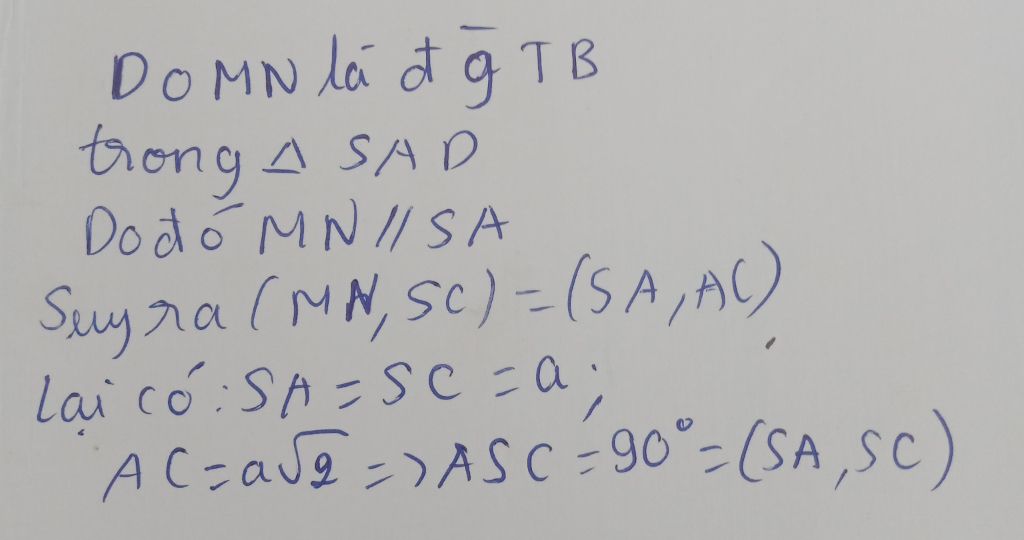 Do MN là đ ḡ TB
trong Δ SAD
Do đó MN // SA
Suy ra (MN, SC) = (SA, AC)
Lại có: SA = SC = a;
AC = a√2 => ASC = 90° = (SA, SC)